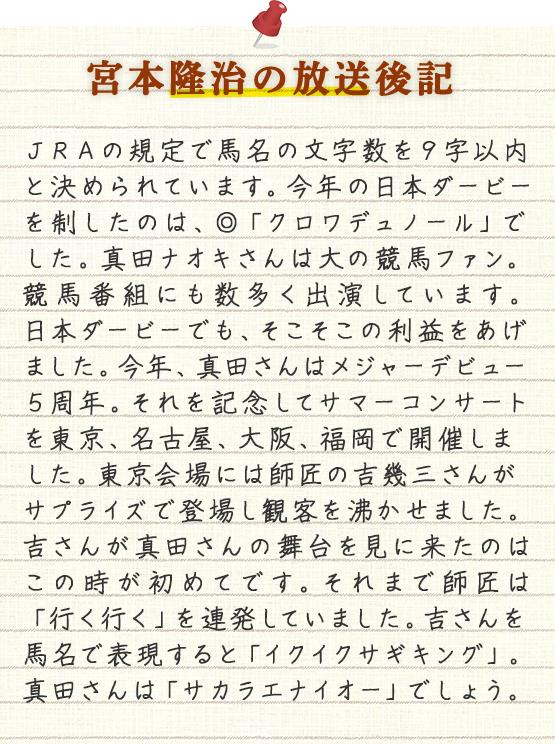 宮本隆治の放送後記
ＪＲＡの規定で馬名の文字数を９字以内
と決められています。今年の日本ダービー
を制したのは、◎「クロワデュノール」で
した。真田ナオキさんは大の競馬ファン。
競馬番組にも数多く出演しています。
日本ダービーでも、そこそこの利益をあげ
ました。今年、真田さんはメジャーデビュー
５周年。それを記念してサマーコンサート
を東京、名古屋、大阪、福岡で開催しま
した。東京会場には師匠の吉幾三さんが
サプライズで登場し観客を沸かせました。
吉さんが真田さんの舞台を見に来たのは
この時が初めてです。それまで師匠は
「行く行く」を連発していました。吉さんを
馬名で表現すると「イクイクサギキング」。
真田さんは「サカラエナイオー」でしょう。